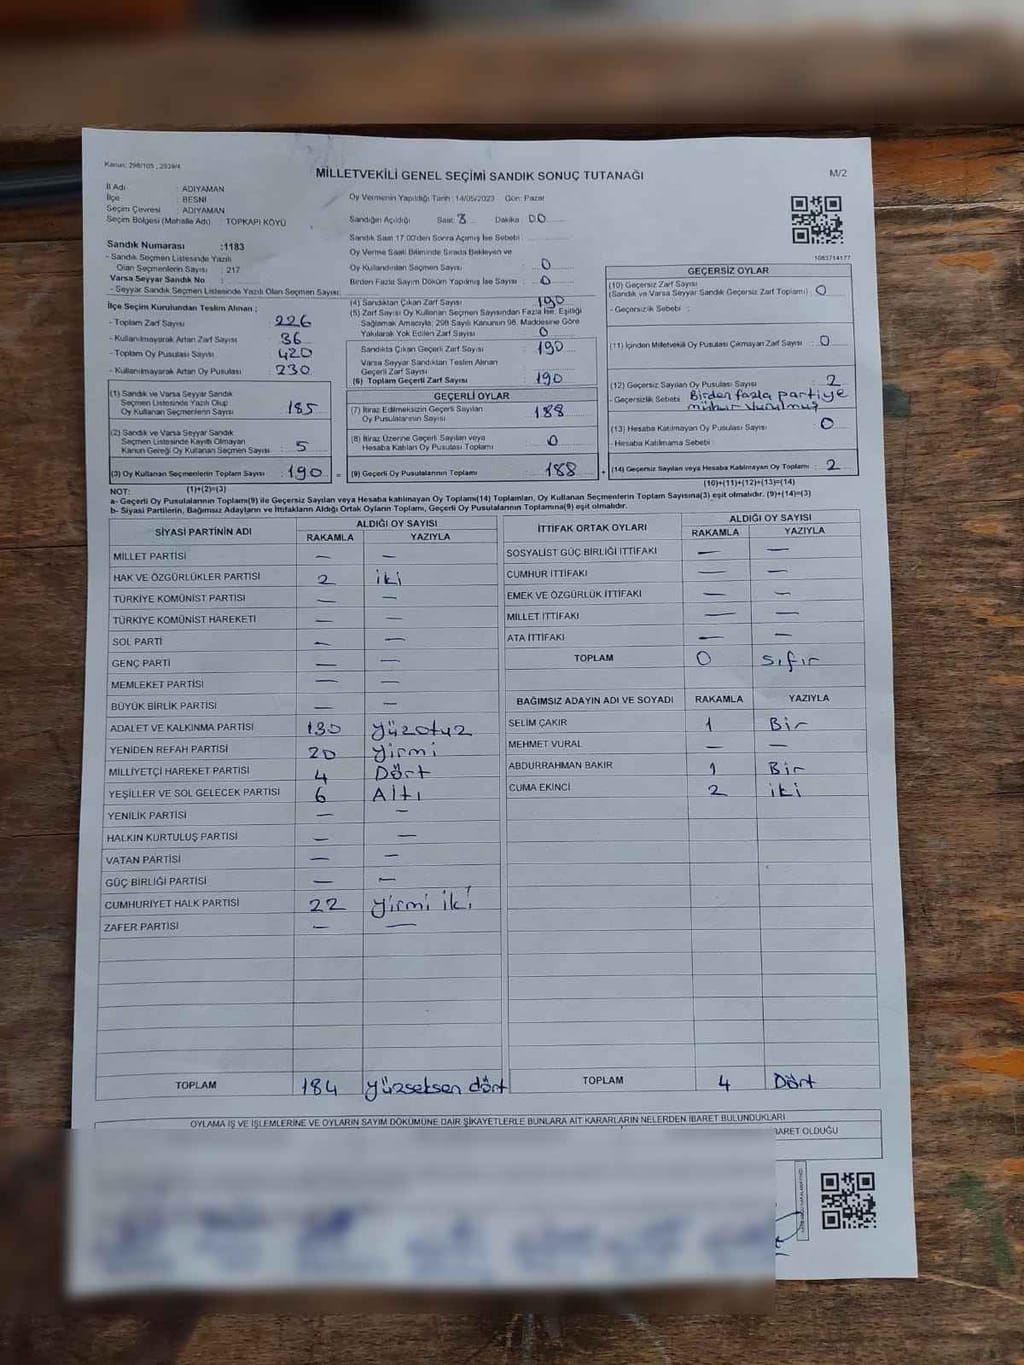 Kanun: 298/105, 2839/4
MİLLETVEKİLİ GENEL SEÇİMİ SANDIK SONUÇ TUTANAĞI
M/2
İl Adı : ADIYAMAN
İlçe : BESNİ
Seçim Çevresi : ADIYAMAN
Seçim Bölgesi (Mahalle Adı) : TOPKAPI KÖYÜ
Oy Vermenin Yapıldığı Tarih : 14/05/2023 Gün: Pazar
Sandığın Açıldığı Saat: 8 Dakika: 00
Sandık Saat 17.00'den Sonra Açılmış İse Sebebi :
Oy Verme Saati Bitiminde Sırada Bekleyen ve
Oy Kullandırılan Seçmen Sayısı : 0
Birden Fazla Sayım Döküm Yapılmış İse Sayısı : 0
Sandık Numarası :1183
- Sandık Seçmen Listesinde Yazılı
Olan Seçmenlerin Sayısı : 217
Varsa Seyyar Sandık No :
- Seyyar Sandık Seçmen Listesinde Yazılı Olan Seçmen Sayısı:
İlçe Seçim Kurulundan Teslim Alınan ;
- Toplam Zarf Sayısı : 226
- Kullanılmayarak Artan Zarf Sayısı : 36
- Toplam Oy Pusulası Sayısı : 420
- Kullanılmayarak Artan Oy Pusulası : 230
(1) Sandık ve Varsa Seyyar Sandık
Seçmen Listesinde Yazılı Olup
Oy Kullanan Seçmenlerin Sayısı : 185
(2) Sandık ve Varsa Seyyar Sandık
Seçmen Listesinde Kayıtlı Olmayan
Kanun Gereği Oy Kullanan Seçmen Sayısı : 5
(3) Oy Kullanan Seçmenlerin Toplam Sayısı : 190
(1)+(2)=(3)
(4) Sandıktan Çıkan Zarf Sayısı : 190
(5) Zarf Sayısı Oy Kullanan Seçmen Sayısından Fazla İse, Eşitliği
Sağlamak Amacıyla; 298 Sayılı Kanunun 98. Maddesine Göre
Yakılarak Yok Edilen Zarf Sayısı : 0
Sandıkta Çıkan Geçerli Zarf Sayısı : 190
Varsa Seyyar Sandıktan Teslim Alınan
Geçerli Zarf Sayısı :
(6) Toplam Geçerli Zarf Sayısı : 190
GEÇERLİ OYLAR
(7) İtiraz Edilmeksizin Geçerli Sayılan
Oy Pusulalarının Sayısı : 188
(8) İtiraz Üzerine Geçerli Sayılan veya
Hesaba Katılan Oy Pusulası Toplamı : 0
= (9) Geçerli Oy Pusulalarının Toplamı : 188
1083714177
GEÇERSİZ OYLAR
(10) Geçersiz Zarf Sayısı
(Sandık ve Varsa Seyyar Sandık Geçersiz Zarf Toplamı) : 0
- Geçersizlik Sebebi :
(11) İçinden Milletvekili Oy Pusulası Çıkmayan Zarf Sayısı : 0
(12) Geçersiz Sayılan Oy Pusulası Sayısı : 2
- Geçersizlik Sebebi : Birden fazla partiye
mühür vurulmuş
(13) Hesaba Katılmayan Oy Pusulası Sayısı : 0
- Hesaba Katılmama Sebebi :
+ (14) Geçersiz Sayılan veya Hesaba Katılmayan Oy Toplamı : 2
(10)+(11)+(12)+(13)=(14)
NOT:
a- Geçerli Oy Pusulalarının Toplamı(9) ile Geçersiz Sayılan veya Hesaba katılmayan Oy Toplamı(14) Toplamları, Oy Kullanan Seçmenlerin Toplam Sayısına(3) eşit olmalıdır. (9)+(14)=(3)
b- Siyasi Partilerin, Bağımsız Adayların ve İttifakların Aldığı Ortak Oyların Toplamı, Geçerli Oy Pusulalarının Toplamına(9) eşit olmalıdır.
SİYASİ PARTİNİN ADI ALDIĞI OY SAYISI
RAKAMLA YAZIYLA
MİLLET PARTİSİ — —
HAK VE ÖZGÜRLÜKLER PARTİSİ 2 iki
TÜRKİYE KOMÜNİST PARTİSİ — —
TÜRKİYE KOMÜNİST HAREKETİ — —
SOL PARTİ — —
GENÇ PARTİ — —
MEMLEKET PARTİSİ — —
BÜYÜK BİRLİK PARTİSİ — —
ADALET VE KALKINMA PARTİSİ 130 yüzotuz
YENİDEN REFAH PARTİSİ 20 yirmi
MİLLİYETÇİ HAREKET PARTİSİ 4 Dört
YEŞİLLER VE SOL GELECEK PARTİSİ 6 Altı
YENİLİK PARTİSİ — —
HALKIN KURTULUŞ PARTİSİ — —
VATAN PARTİSİ — —
GÜÇ BİRLİĞİ PARTİSİ — —
CUMHURİYET HALK PARTİSİ 22 yirmi iki
ZAFER PARTİSİ — —
TOPLAM 184 yüzseksen dört
İTTİFAK ORTAK OYLARI ALDIĞI OY SAYISI
RAKAMLA YAZIYLA
SOSYALİST GÜÇ BİRLİĞİ İTTİFAKI — —
CUMHUR İTTİFAKI — —
EMEK VE ÖZGÜRLÜK İTTİFAKI — —
MİLLET İTTİFAKI — —
ATA İTTİFAKI — —
TOPLAM 0 sıfır
BAĞIMSIZ ADAYIN ADI VE SOYADI RAKAMLA YAZIYLA
SELİM ÇAKIR 1 Bir
MEHMET VURAL — —
ABDURRAHMAN BAKIR 1 Bir
CUMA EKİNCİ 2 iki
TOPLAM 4 Dört
OYLAMA İŞ VE İŞLEMLERİNE VE OYLARIN SAYIM DÖKÜMÜNE DAİR ŞİKAYETLERLE BUNLARA AİT KARARLARIN NELERDEN İBARET BULUNDUKLARI
BARET OLDUĞU